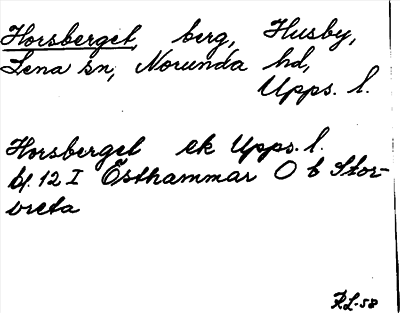 Horsberget, berg, Husby,
Lena sn, Norunda hd,
Upps. l.
Horsberget ek Upps. l.
bl. 12 I Östhammar O b Stor-
vreta
R.L-58